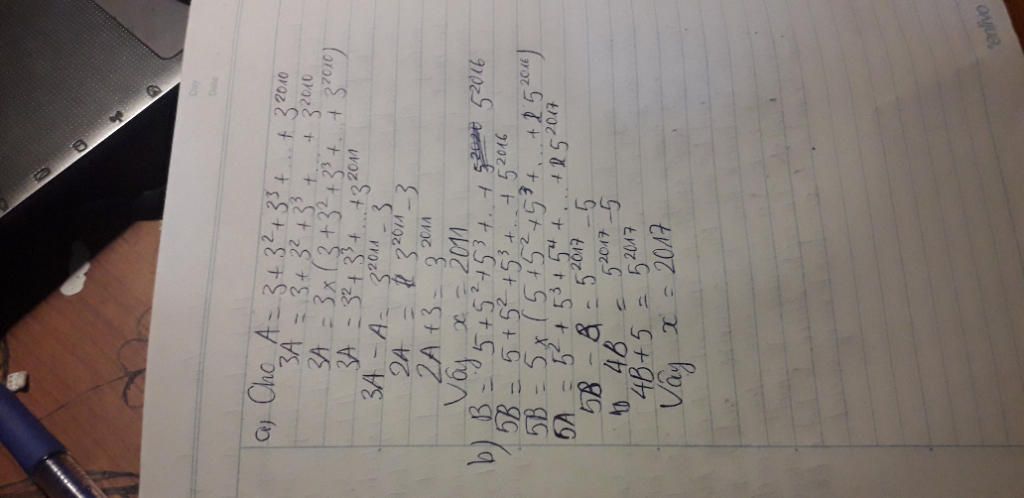 a) Cho A = 3 + 3² + 3³ + ... + 3²⁰¹⁰
3A = 3 + 3² + 3³ + ... + 3²⁰¹⁰
3A = 3 x (3 + 3² + 3³ + ... + 3²⁰¹⁰)
3A = 3² + 3³ + ... + 3²⁰¹¹
3A - A = 3²⁰¹¹ - 3
2A = 3²⁰¹¹ - 3
2A + 3 = 3²⁰¹¹
Vây x = 2011
b) B = 5 + 5² + 5³ + ... + 5²⁰¹⁶
5B = 5 + 5² + 5³ + ... + 5²⁰¹⁶
5B = 5 x (5 + 5² + 5³ + ... + 5²⁰¹⁶)
5A = 5² + 5³ + 5⁴ + ... + 5²⁰¹⁷
5B - B = 5²⁰¹⁷ - 5
4B = 5²⁰¹⁷ - 5
4B + 5 = 5²⁰¹⁷
Vây x = 2017
Day
Date